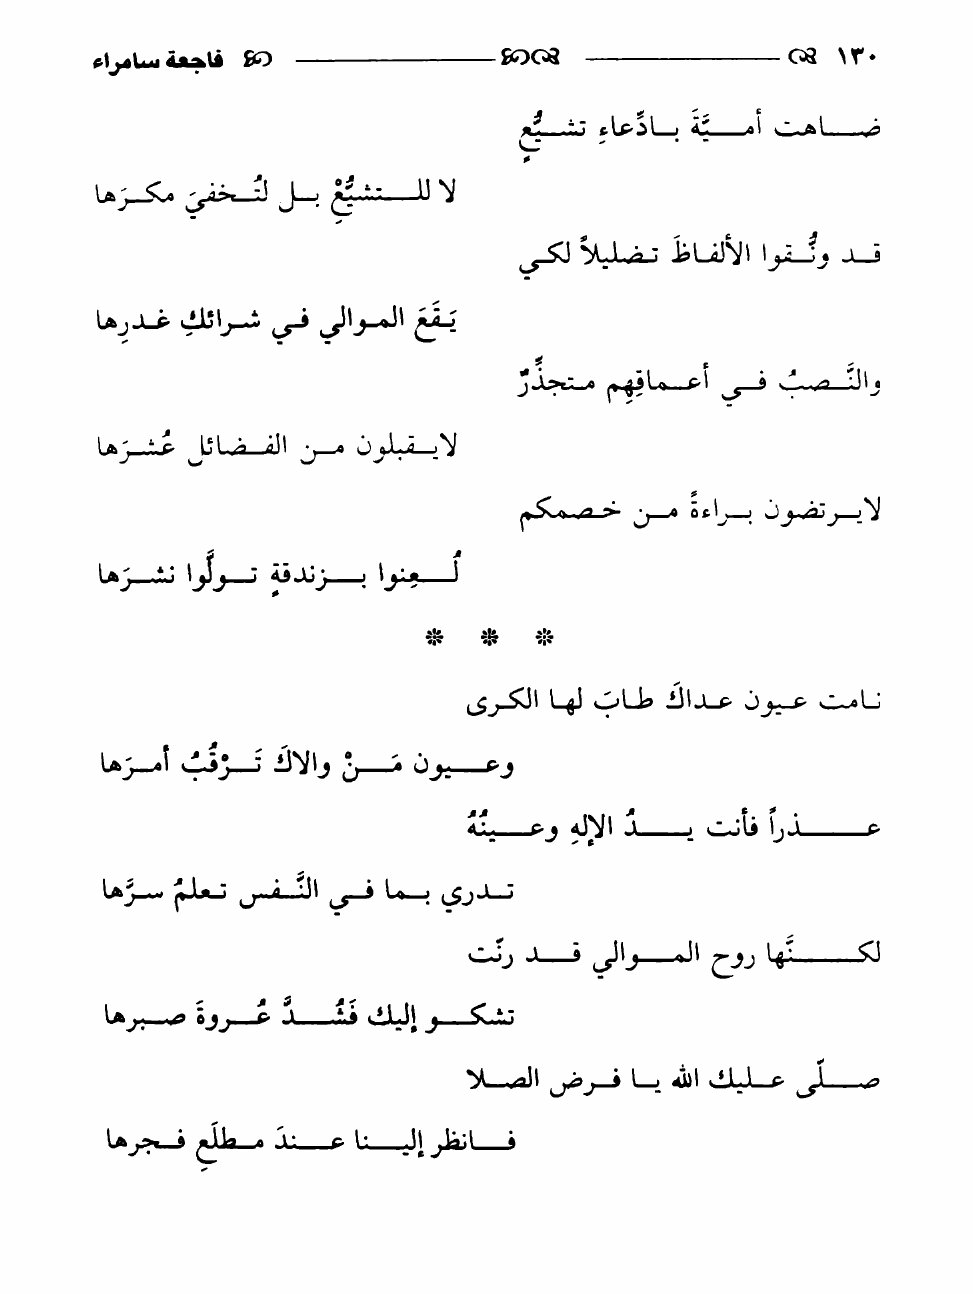 ١٣٠ فاجعة سامراء
ضاهت أميَّةَ بادِّعاءِ تشيُّعٍ
لا للتشيُّعِ بل لتُخفيَ مكرَها
قد ونُّقوا الألفاظَ تضليلاً لكي
يَقَعَ الموالي في شرائكِ غدرِها
والنَّصبُ في أعماقِهِم متجذِّرٌ
لايقبلون من الفضائل عُشرَها
لايرتضون براءةً من خصمكم
لُعِنوا بزندقةٍ تولَّوا نشرَها
* * *
نامت عيون عداكَ طابَ لها الكرى
وعيون مَنْ والاكَ تَرْقُبُ أمرَها
عذراً فأنت يدُ الإلهِ وعينُهُ
تدري بما في النَّفس تعلمُ سرَّها
لكنَّها روح الموالي قد رنّت
تشكو إليك فَشُدَّ عُروةَ صبرها
صلّى عليك الله يا فرض الصلا
فانظر إلينا عندَ مطلَعِ فجرها